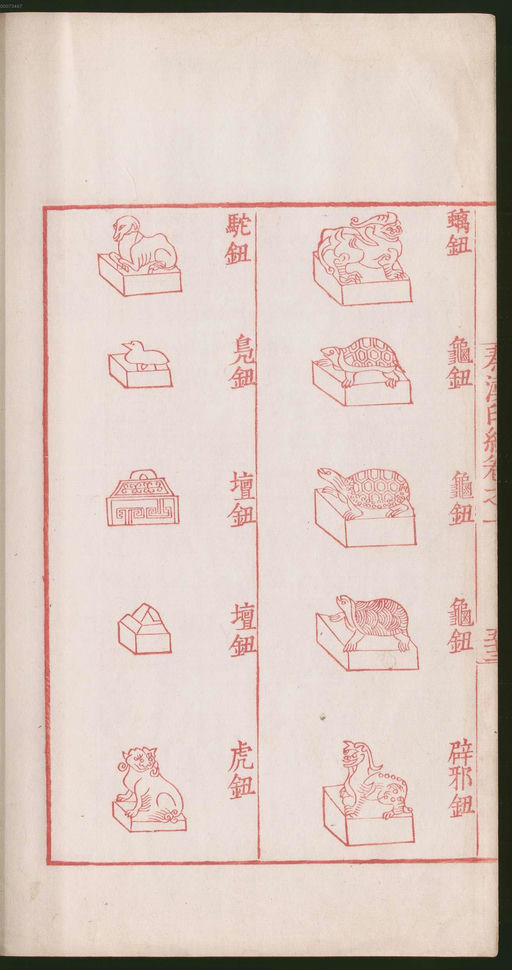 00073467
螭鈕
龜鈕
龜鈕
龜鈕
辟邪鈕
駝鈕
鳧鈕
壇鈕
壇鈕
虎鈕